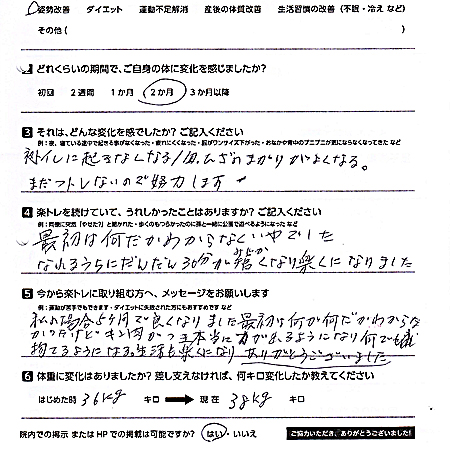 姿勢改善 ダイエット 運動不足解消 産後の体質改善 生活習慣の改善（不眠・冷え など）
その他（ ）
2 どれくらいの期間で、ご自身の体に変化を感じましたか？
初回 2週間 1か月 2か月 3か月以降
3 それは、どんな変化を感でしたか？ご記入ください
夜トイレに起きなくなる/
まだつトレないので努力します
4 楽トレを続けていて、うれしかったことはありますか？ご記入ください
最初は何だかわからなくいやでした
なれるうちにだんだん30分が短くなり楽くになりました
5 今から楽トレに取り組む方へ、メッセージをお願いします
例：運動が苦手でもできます・ダイエットに失敗された方にもおすすめです など
私の場合5ヶ月で良くなりました最初は何が何だかわからな
かったけど 本当に があがれるようになり何でも
持てるようになる生活も楽くになり ありがとうございました
6 体重に変化はありましたか？差し支えなければ、何キロ変化したか教えてください
はじめた時 36kg キロ → 現在 38kg キロ
院内での掲示 または HPでの掲載は可能ですか？ はい・いいえ ご協力いただき、ありがとうございました！